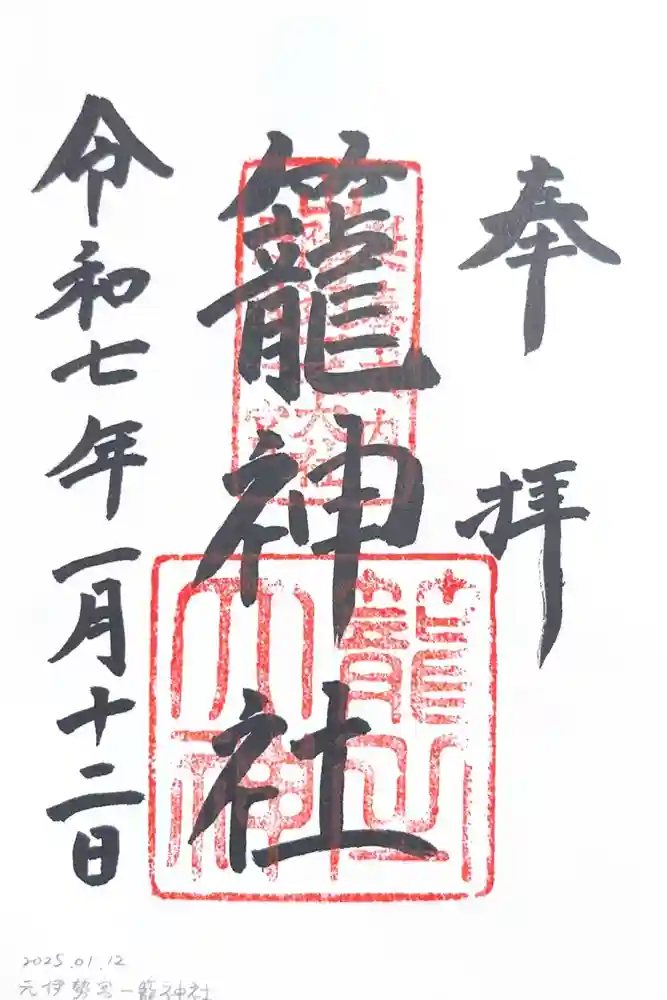 奉拝
籠神社
令和七年一月十二日
2025.01.12
元伊勢宮一籠神社